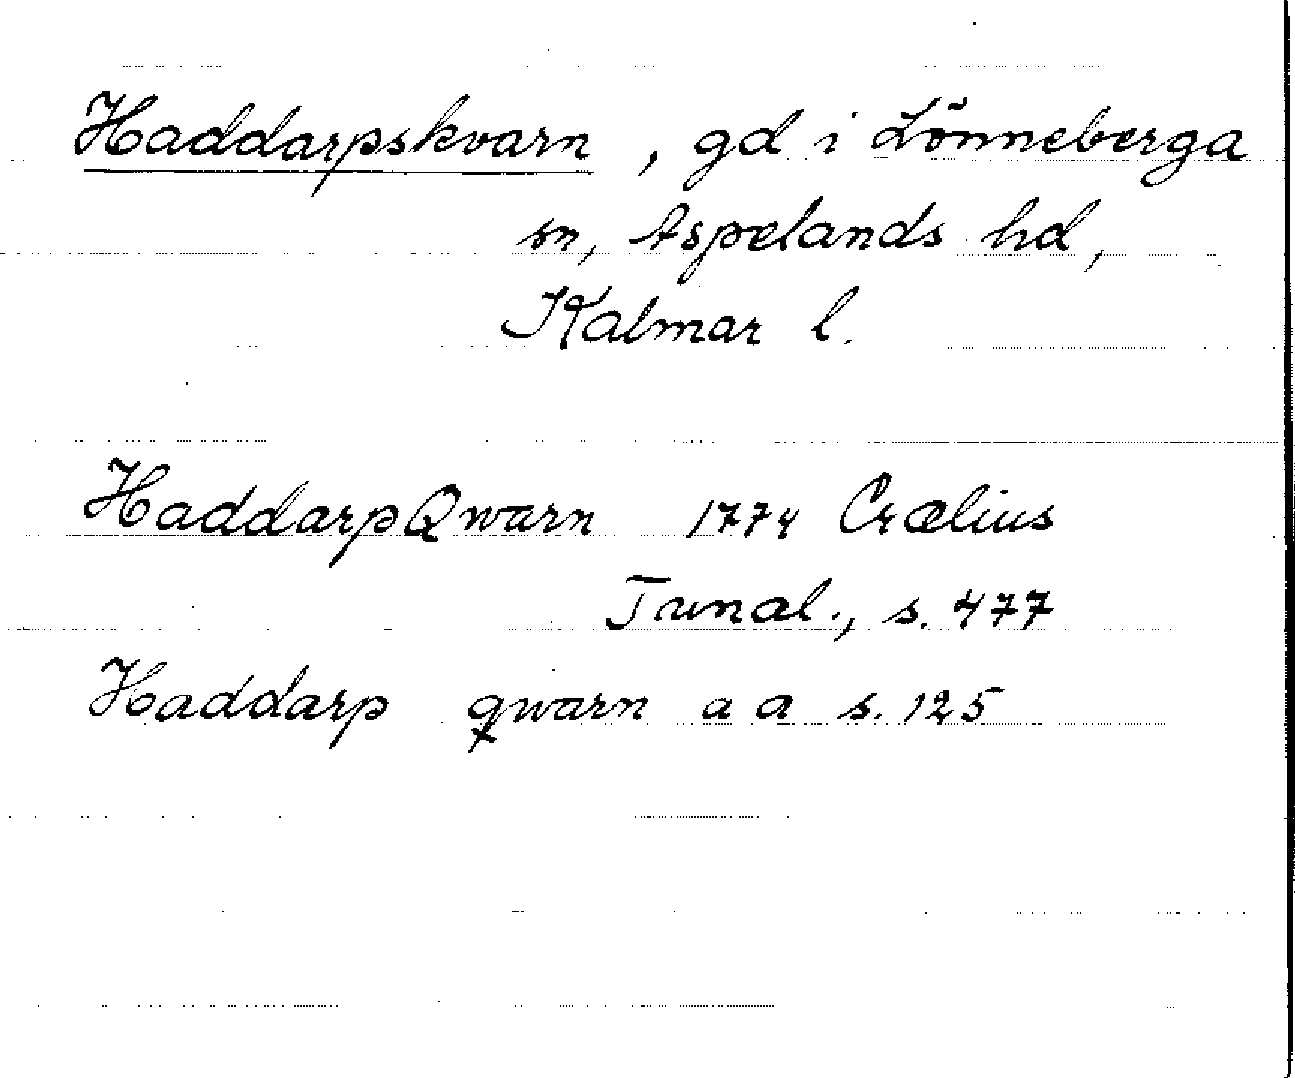 Haddarpskvarn, gd i Lönneberga
sn, Aspelands hd,
Kalmar l.
HaddarpQwarn 1774 Crælius
Tunal., s. 477
Haddarp qwarn a a s. 125